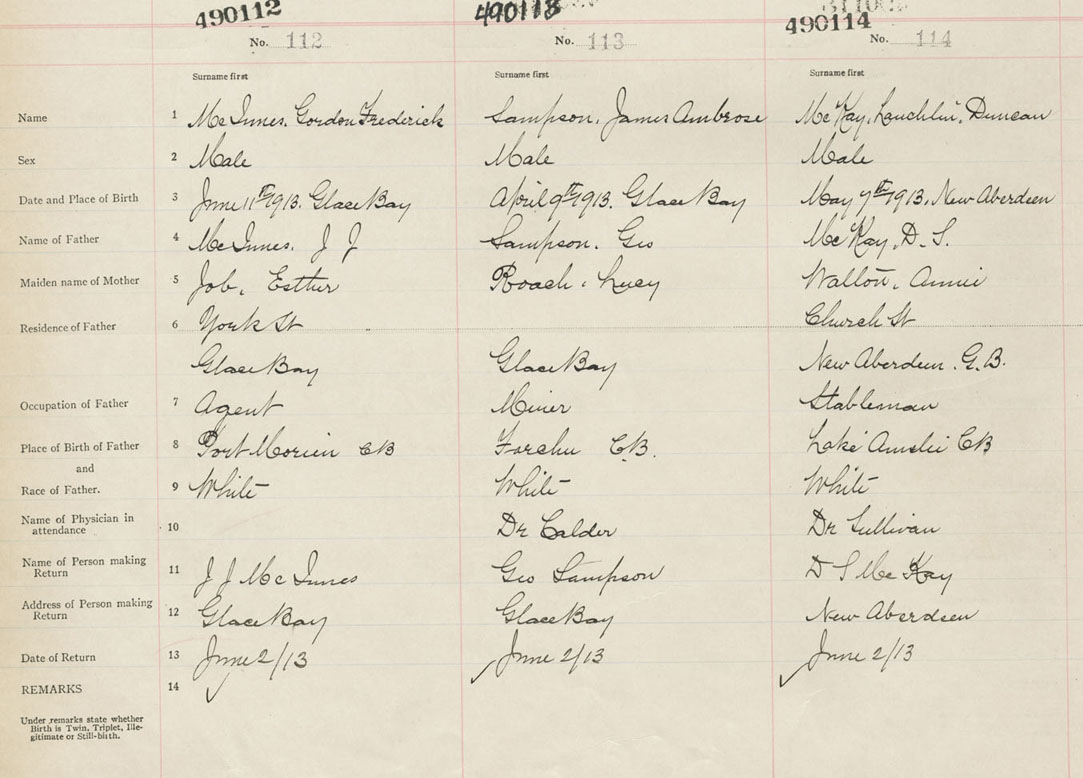 490112 490113 490114
No. 112 No. 113 No. 114
Surname first Surname first Surname first
Name 1 McInnes, Gordon Frederick Sampson, James Ambrose McKay, Lauchlin, Duncan
Sex 2 Male Male Male
Date and Place of Birth 3 June 1st 1913. Glace Bay April 9th 1913. Glace Bay May 7th 1913, New Aberdeen
Name of Father 4 McInnes. J J Sampson. Geo McKay, D. S.
Maiden name of Mother 5 Job, Esther Roach, Lucy Walton, Annie
Residence of Father 6 York St Church St
Glace Bay Glace Bay New Aberdeen. G.B.
Occupation of Father 7 Agent Miner Stableman
Place of Birth of Father 8 Port Morien CB Forchu C.B. Lake CB
and
Race of Father. 9 White White White
Name of Physician in
attendance 10 Dr Calder Dr Sullivan
Name of Person making
Return 11 J J McInnes Geo Sampson D S McKay
Address of Person making
Return 12 Glace Bay Glace Bay New Aberdeen
Date of Return 13 June 2/13 June 2/13 June 2/13
REMARKS 14
Under remarks state whether
Birth is Twin, Triplet, Ille-
gitimate or Still-birth.